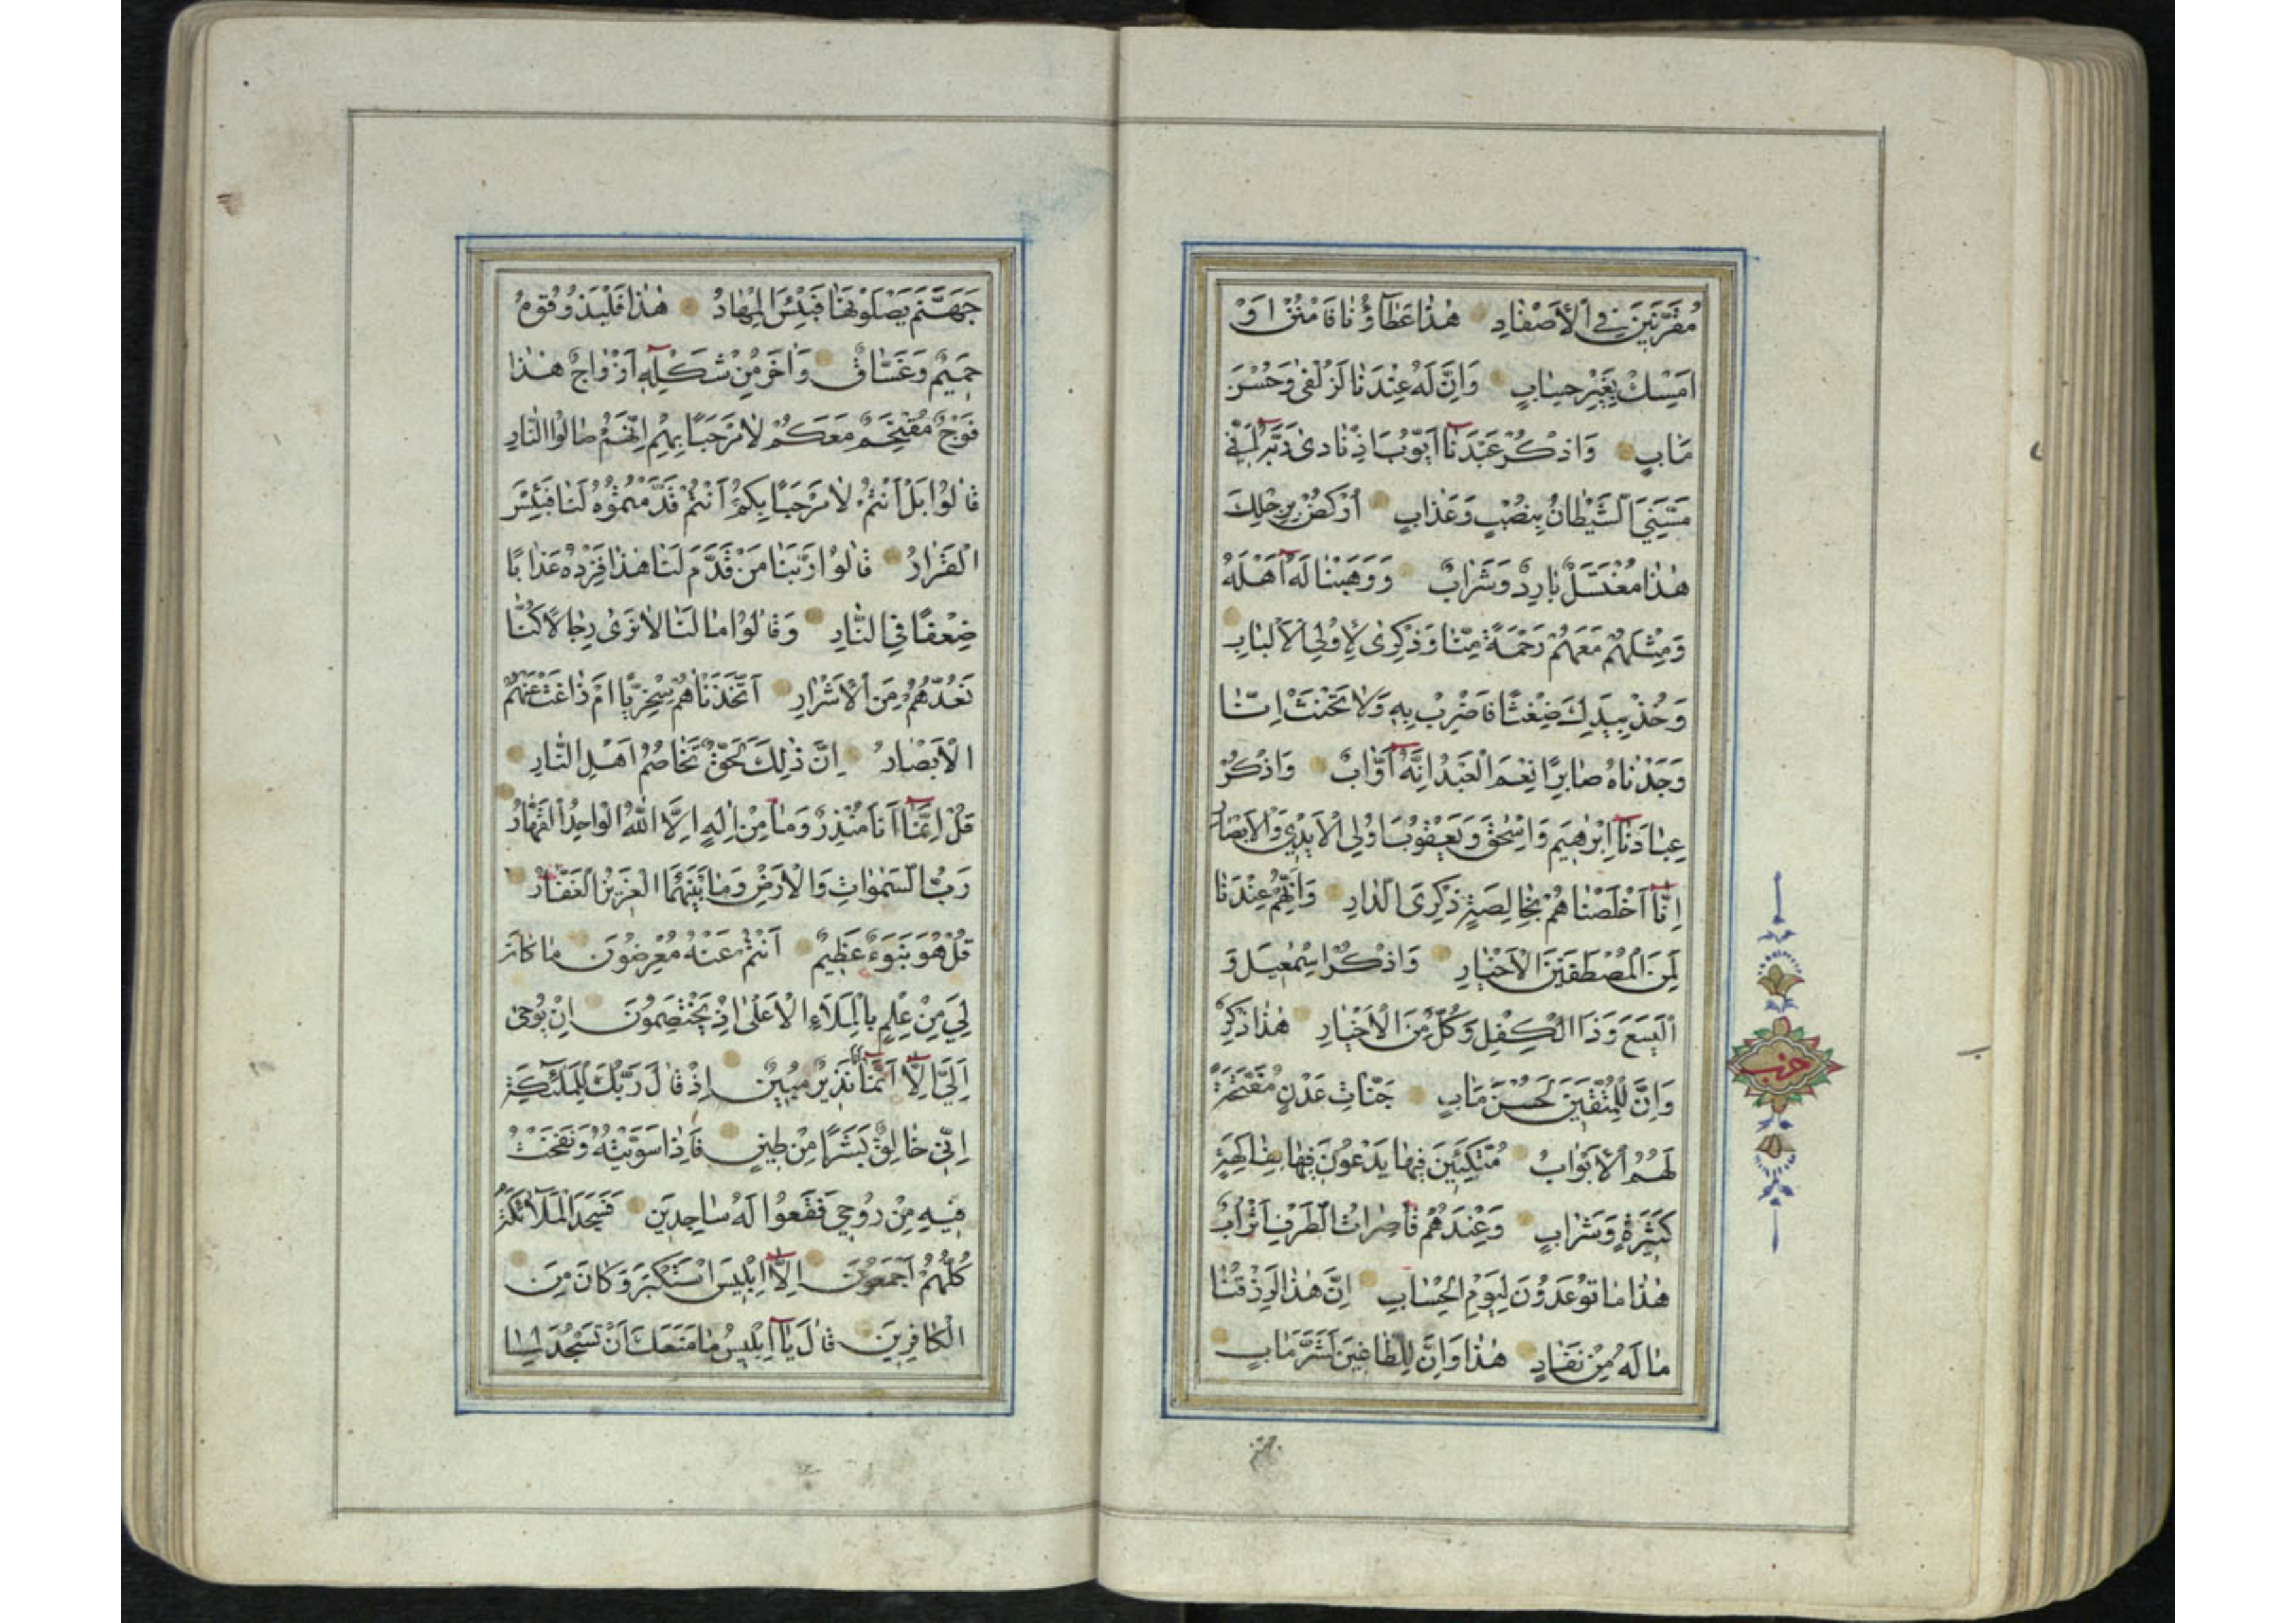 مُقَرَّنِينَ فِي الْأَصْفَادِ هٰذَا عَطَاؤُنَا فَامْنُنْ اَوْ
اَمْسِكْ بِغَيْرِ حِسَابٍ وَاِنَّ لَهُ عِنْدَنَا لَزُلْفٰى وَحُسْنَ
مَاٰبٍ وَاذْكُرْ عَبْدَنَا اَيُّوبَ اِذْ نَادٰى رَبَّهُ اَنِّي
مَسَّنِيَ الشَّيْطَانُ بِنُصْبٍ وَعَذَابٍ اُرْكُضْ بِرِجْلِكَ
هٰذَا مُغْتَسَلٌ بَارِدٌ وَشَرَابٌ وَوَهَبْنَا لَهُ اَهْلَهُ
وَمِثْلَهُمْ مَعَهُمْ رَحْمَةً مِنَّا وَذِكْرٰى لِاُولِي الْاَلْبَابِ
وَخُذْ بِيَدِكَ ضِغْثًا فَاضْرِبْ بِهِ وَلَا تَحْنَثْ اِنَّا
وَجَدْنَاهُ صَابِرًا نِعْمَ الْعَبْدُ اِنَّهُ اَوَّابٌ وَاذْكُرْ
عِبَادَنَا اِبْرٰهِيمَ وَاِسْحٰقَ وَيَعْقُوبَ اُولِي الْاَيْدِي وَالْاَبْصَارِ
اِنَّا اَخْلَصْنَاهُمْ بِخَالِصَةٍ ذِكْرَى الدَّارِ وَاِنَّهُمْ عِنْدَنَا
لَمِنَ الْمُصْطَفَيْنَ الْاَخْيَارِ وَاذْكُرْ اِسْمٰعِيلَ وَ
الْيَسَعَ وَذَا الْكِفْلِ وَكُلٌّ مِنَ الْاَخْيَارِ هٰذَا ذِكْرٌ
وَاِنَّ لِلْمُتَّقِينَ لَحُسْنَ مَاٰبٍ جَنَّاتِ عَدْنٍ مُفَتَّحَةً
لَهُمُ الْاَبْوَابُ مُتَّكِئِينَ فِيهَا يَدْعُونَ فِيهَا بِفَاكِهَةٍ
كَثِيرَةٍ وَشَرَابٍ وَعِنْدَهُمْ قَاصِرَاتُ الطَّرْفِ اَتْرَابٌ
هٰذَا مَا تُوعَدُونَ لِيَوْمِ الْحِسَابِ اِنَّ هٰذَا لَرِزْقُنَا
مَا لَهُ مِنْ نَفَادٍ هٰذَا وَاِنَّ لِلطَّاغِينَ لَشَرَّ مَاٰبٍ
حزب
جهنم
جَهَنَّمَ يَصْلَوْنَهَا فَبِئْسَ الْمِهَادُ هٰذَا فَلْيَذُوقُوهُ
حَمِيمٌ وَغَسَّاقٌ وَاٰخَرُ مِنْ شَكْلِهِ اَزْوَاجٌ هٰذَا
فَوْجٌ مُقْتَحِمٌ مَعَكُمْ لَا مَرْحَبًا بِهِمْ اِنَّهُمْ صَالُوا النَّارِ
قَالُوا بَلْ اَنْتُمْ لَا مَرْحَبًا بِكُمْ اَنْتُمْ قَدَّمْتُمُوهُ لَنَا فَبِئْسَ
الْقَرَارُ قَالُوا رَبَّنَا مَنْ قَدَّمَ لَنَا هٰذَا فَزِدْهُ عَذَابًا
ضِعْفًا فِي النَّارِ وَقَالُوا مَا لَنَا لَا نَرٰى رِجَالًا كُنَّا
نَعُدُّهُمْ مِنَ الْاَشْرَارِ اَتَّخَذْنَاهُمْ سِخْرِيًّا اَمْ زَاغَتْ عَنْهُمُ
الْاَبْصَارُ اِنَّ ذٰلِكَ لَحَقٌّ تَخَاصُمُ اَهْلِ النَّارِ
قُلْ اِنَّمَا اَنَا مُنْذِرٌ وَمَا مِنْ اِلٰهٍ اِلَّا اللّٰهُ الْوَاحِدُ الْقَهَّارُ
رَبُّ السَّمٰوَاتِ وَالْاَرْضِ وَمَا بَيْنَهُمَا الْعَزِيزُ الْغَفَّارُ
قُلْ هُوَ نَبَؤٌ عَظِيمٌ اَنْتُمْ عَنْهُ مُعْرِضُونَ مَا كَانَ
لِيَ مِنْ عِلْمٍ بِالْمَلَاِ الْاَعْلٰى اِذْ يَخْتَصِمُونَ اِنْ يُوحٰى
اِلَيَّ اِلَّا اَنَّمَا اَنَا نَذِيرٌ مُبِينٌ اِذْ قَالَ رَبُّكَ لِلْمَلٰئِكَةِ
اِنِّي خَالِقٌ بَشَرًا مِنْ طِينٍ فَاِذَا سَوَّيْتُهُ وَنَفَخْتُ
فِيهِ مِنْ رُوحِي فَقَعُوا لَهُ سَاجِدِينَ فَسَجَدَ الْمَلَائِكَةُ
كُلُّهُمْ اَجْمَعُونَ اِلَّا اِبْلِيسَ اسْتَكْبَرَ وَكَانَ مِنَ
الْكَافِرِينَ قَالَ يَا اِبْلِيسُ مَا مَنَعَكَ اَنْ تَسْجُدَ لِمَا